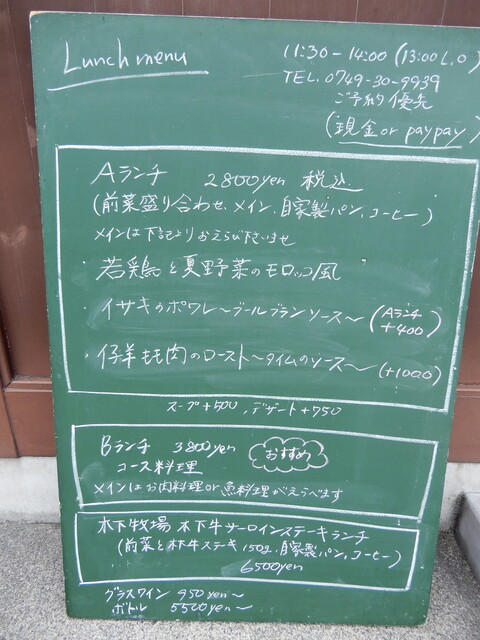 Lunch menu
11:30-14:00 (13:00 L.O)
TEL. 0749-30-9939
ご予約優先
(現金 or paypay)
Aランチ 2800yen 税込
(前菜盛り合わせ、メイン、自家製パン、コーヒー)
メインは下記よりおえらび下さいませ
・若鶏と夏野菜のモロッコ風
・イサキのポワレ〜ブールブランソース〜 (Aランチ +400)
・仔羊もも肉のロースト〜タイムのソース〜 (+1000)
スープ+500, デザート+750
Bランチ 3800yen おすすめ
コース料理
メインはお肉料理or魚料理がえらべます
木下牧場 木下牛サーロインステーキランチ
(前菜と木下牛ステーキ150g、自家製パン、コーヒー)
6500yen
グラスワイン 950yen〜
ボトル 5500yen〜